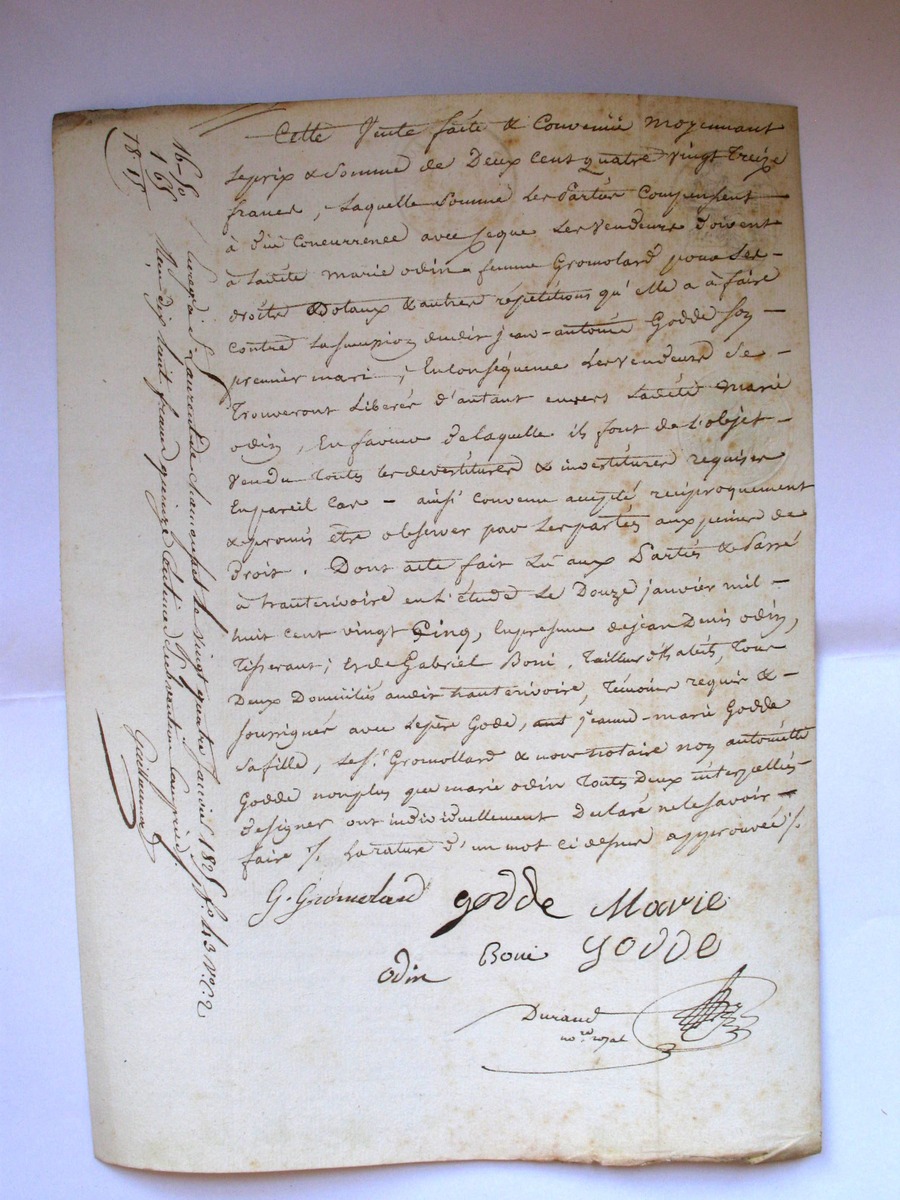 Cette Vente faite & Convenüe moyennant
le prix & Somme de Deux Cent quatre vingt treize
francs, laquelle Somme les Parties Compensent
à düe Concurrence avec ce que les vendeurs doivent
à ladite marie odin femme Gromolard pour les
droits Dotaux & autres répétitions qu'elle a à faire
contre la succession dudit jean-antoine Godde son
premier mari, En conséquence les vendeurs se
Trouveront Liberés d'autant envers ladite marie
odin, En faveur de laquelle ils font de l'objet
vendu toutes les devestitures & investitures requises
En pareil Cas - ainsi convenu accepté réciproquement
& promis être observer par les parties aux peines de
droit. Dont acte fait Lû aux Parties & Passé
à hauterivoire en l'étude Le Douze janvier mil
huit cent vingt Cinq, En presence de jean Denis odin,
Tisserant; Et de Gabriel Boni, Tailleur d'habits, Tous
Deux Domiciliés audit hauterivoire, Témoins requis &
soussignés avec le père Gode, jeanne-marie Godde
sa fille, le Sr. Gromollard & nous notaire non antoinette
Godde non plus que marie odin toutes Deux interpellées
de signer ont individuellement Declaré ne le savoir
faire ./. La rature d'un mot ci dessus approuvée ./.
G. Gromolard godde Marie
odin Boni godde
Durand
no.re royal
16-50
1 65
18 15
Enregistré à St Laurent de chamousset le vingt quatre janvier 1825 fo. 43 Vo. C. 2
Reçu dix huit francs quinze Centimes subvention Comprise.
Guillaumod